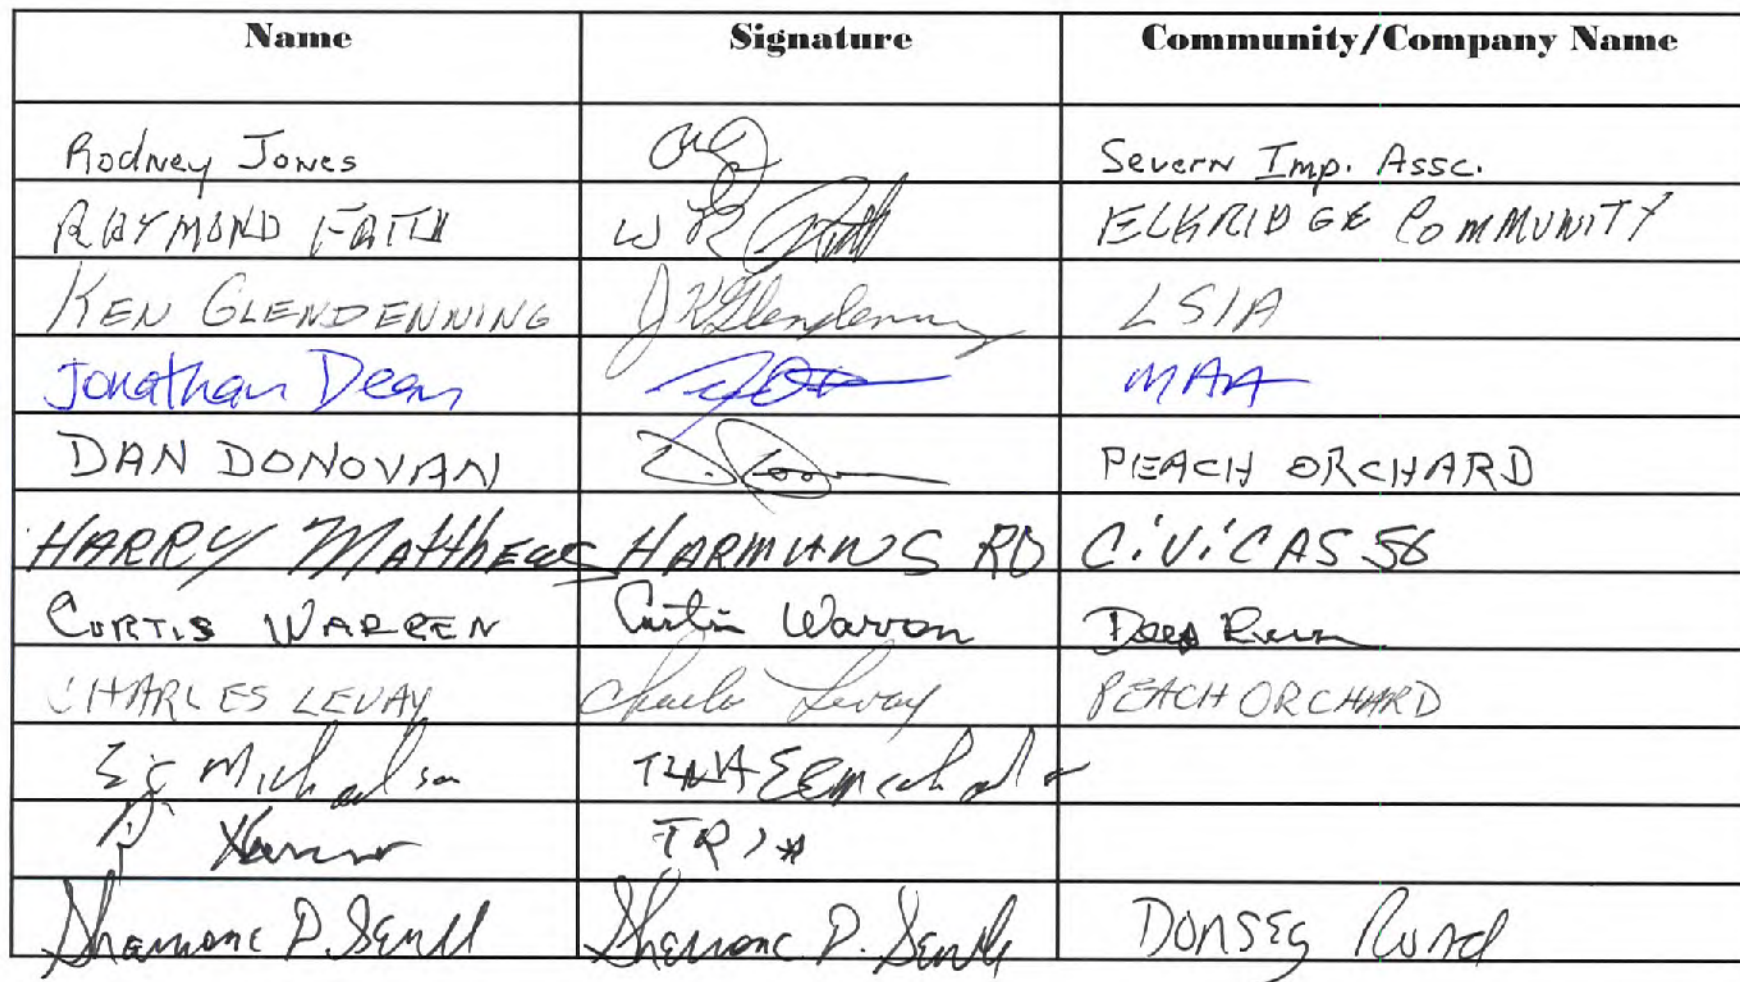 Name Signature Community/Company Name
Rodney Jones Severn Imp. Assc.
RAYMOND FAITH W R ELKRIDGE COMMUNITY
KEN GLENDENNING JKGlendenning LSIA
Jonathan Dean MAA
DAN DONOVAN D. PEACH ORCHARD
HARRY Matthews HARMANS RD CiViC ASS6
CURTIS WARREN Curtis Warren Deep Run
CHARLES LEVAY Charles Levay PEACH ORCHARD
Michaelson
P. Sewell P. Sewell Dorsey Road